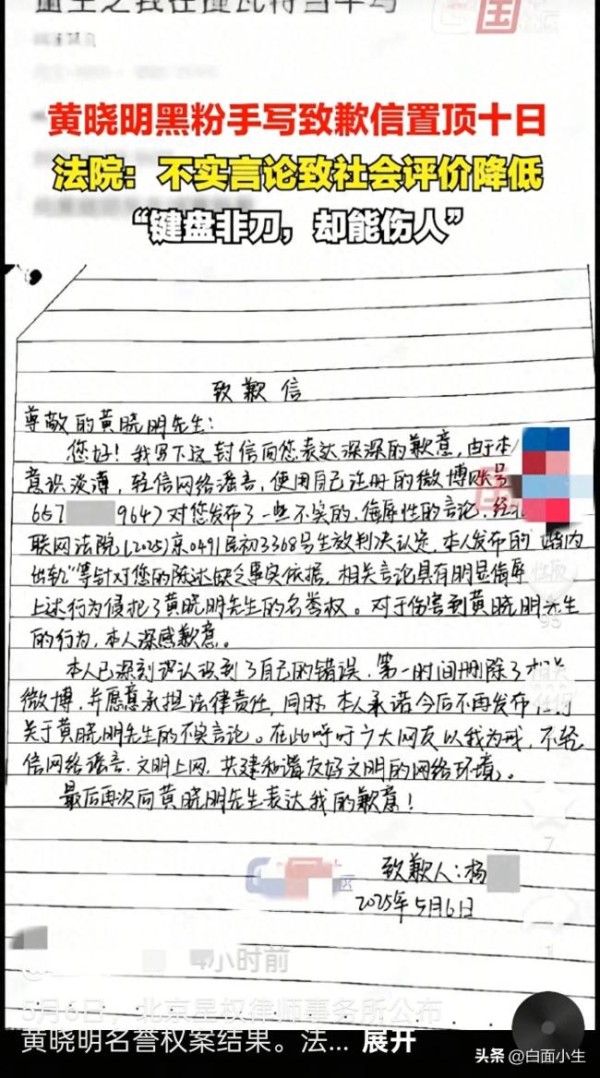 重生之我在提瓦特当牛马
黄晓明黑粉手写致歉信置顶十日
法院：不实言论致社会评价降低
“键盘非刀，却能伤人”
致歉信
尊敬的黄晓明先生：
您好！我写下这封信向您表达深深的歉意，由于本人
意识淡薄，轻信网络谣言，使用自己注册的微博账号
657 9647对您发布了一些不实的、侮辱性的言论，经
联网法院(2025)京0491民初3368号生效判决认定，本人发布的“婚内
出轨”等针对您的陈述缺乏事实依据，相关言论具有明显侮辱
上述行为侵犯了黄晓明先生的名誉权。对于伤害到黄晓明先生
的行为，本人深感歉意。
本人已深刻认识到了自己的错误，第一时间删除了相关
微博，并愿意承担法律责任，同时，本人承诺今后不再发布
关于黄晓明先生的不实言论。在此呼吁广大网友以我为戒，不轻
信网络谣言，文明上网，共建和谐友好文明的网络环境。
最后再次向黄晓明先生表达我的歉意！
致歉人：杨
2025年5月6日
4小时前
5月6日，北京星权律师事务所公布
黄晓明名誉权案结果。法... 展开
头条 @白面小生
95
7
1